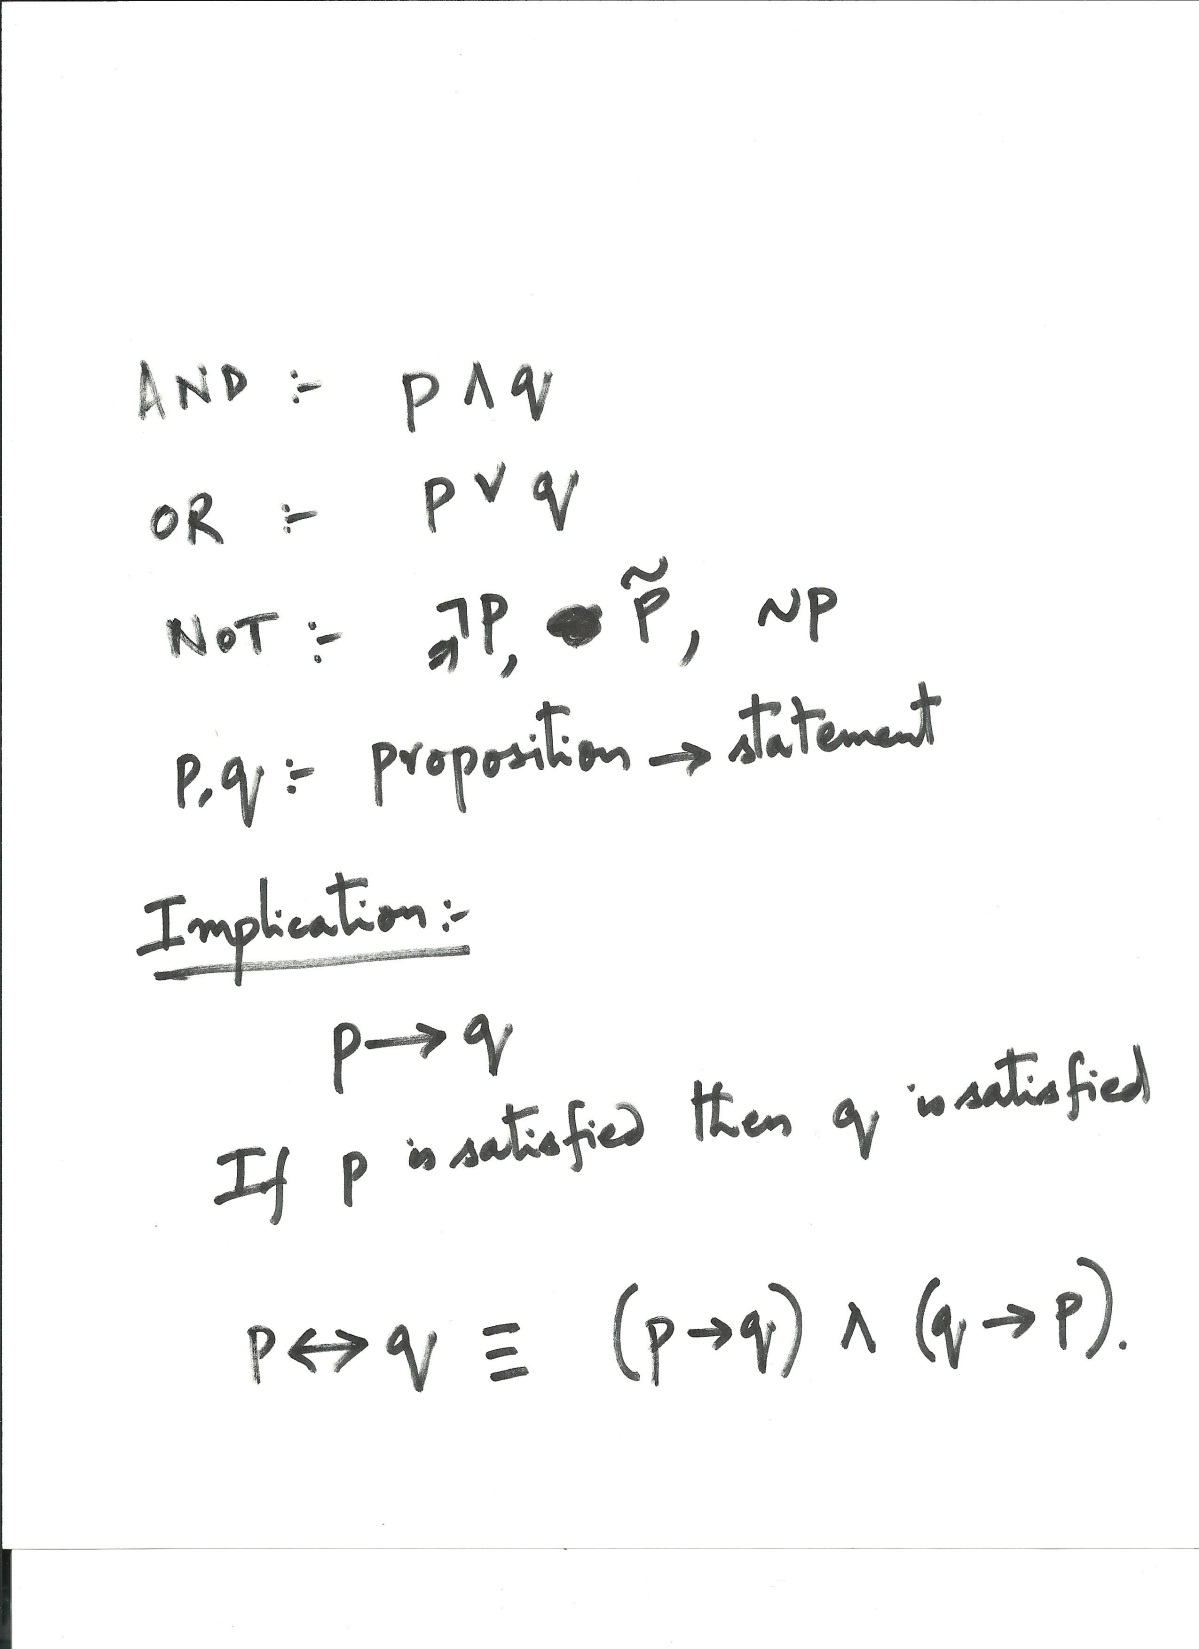 AND :- p ∧ q
OR :- p ∨ q
NOT :- ¬p, p̃, ~p
p, q :- proposition → statement
Implication :-
p → q
If p is satisfied then q is satisfied
p ↔ q ≡ (p → q) ∧ (q → p).